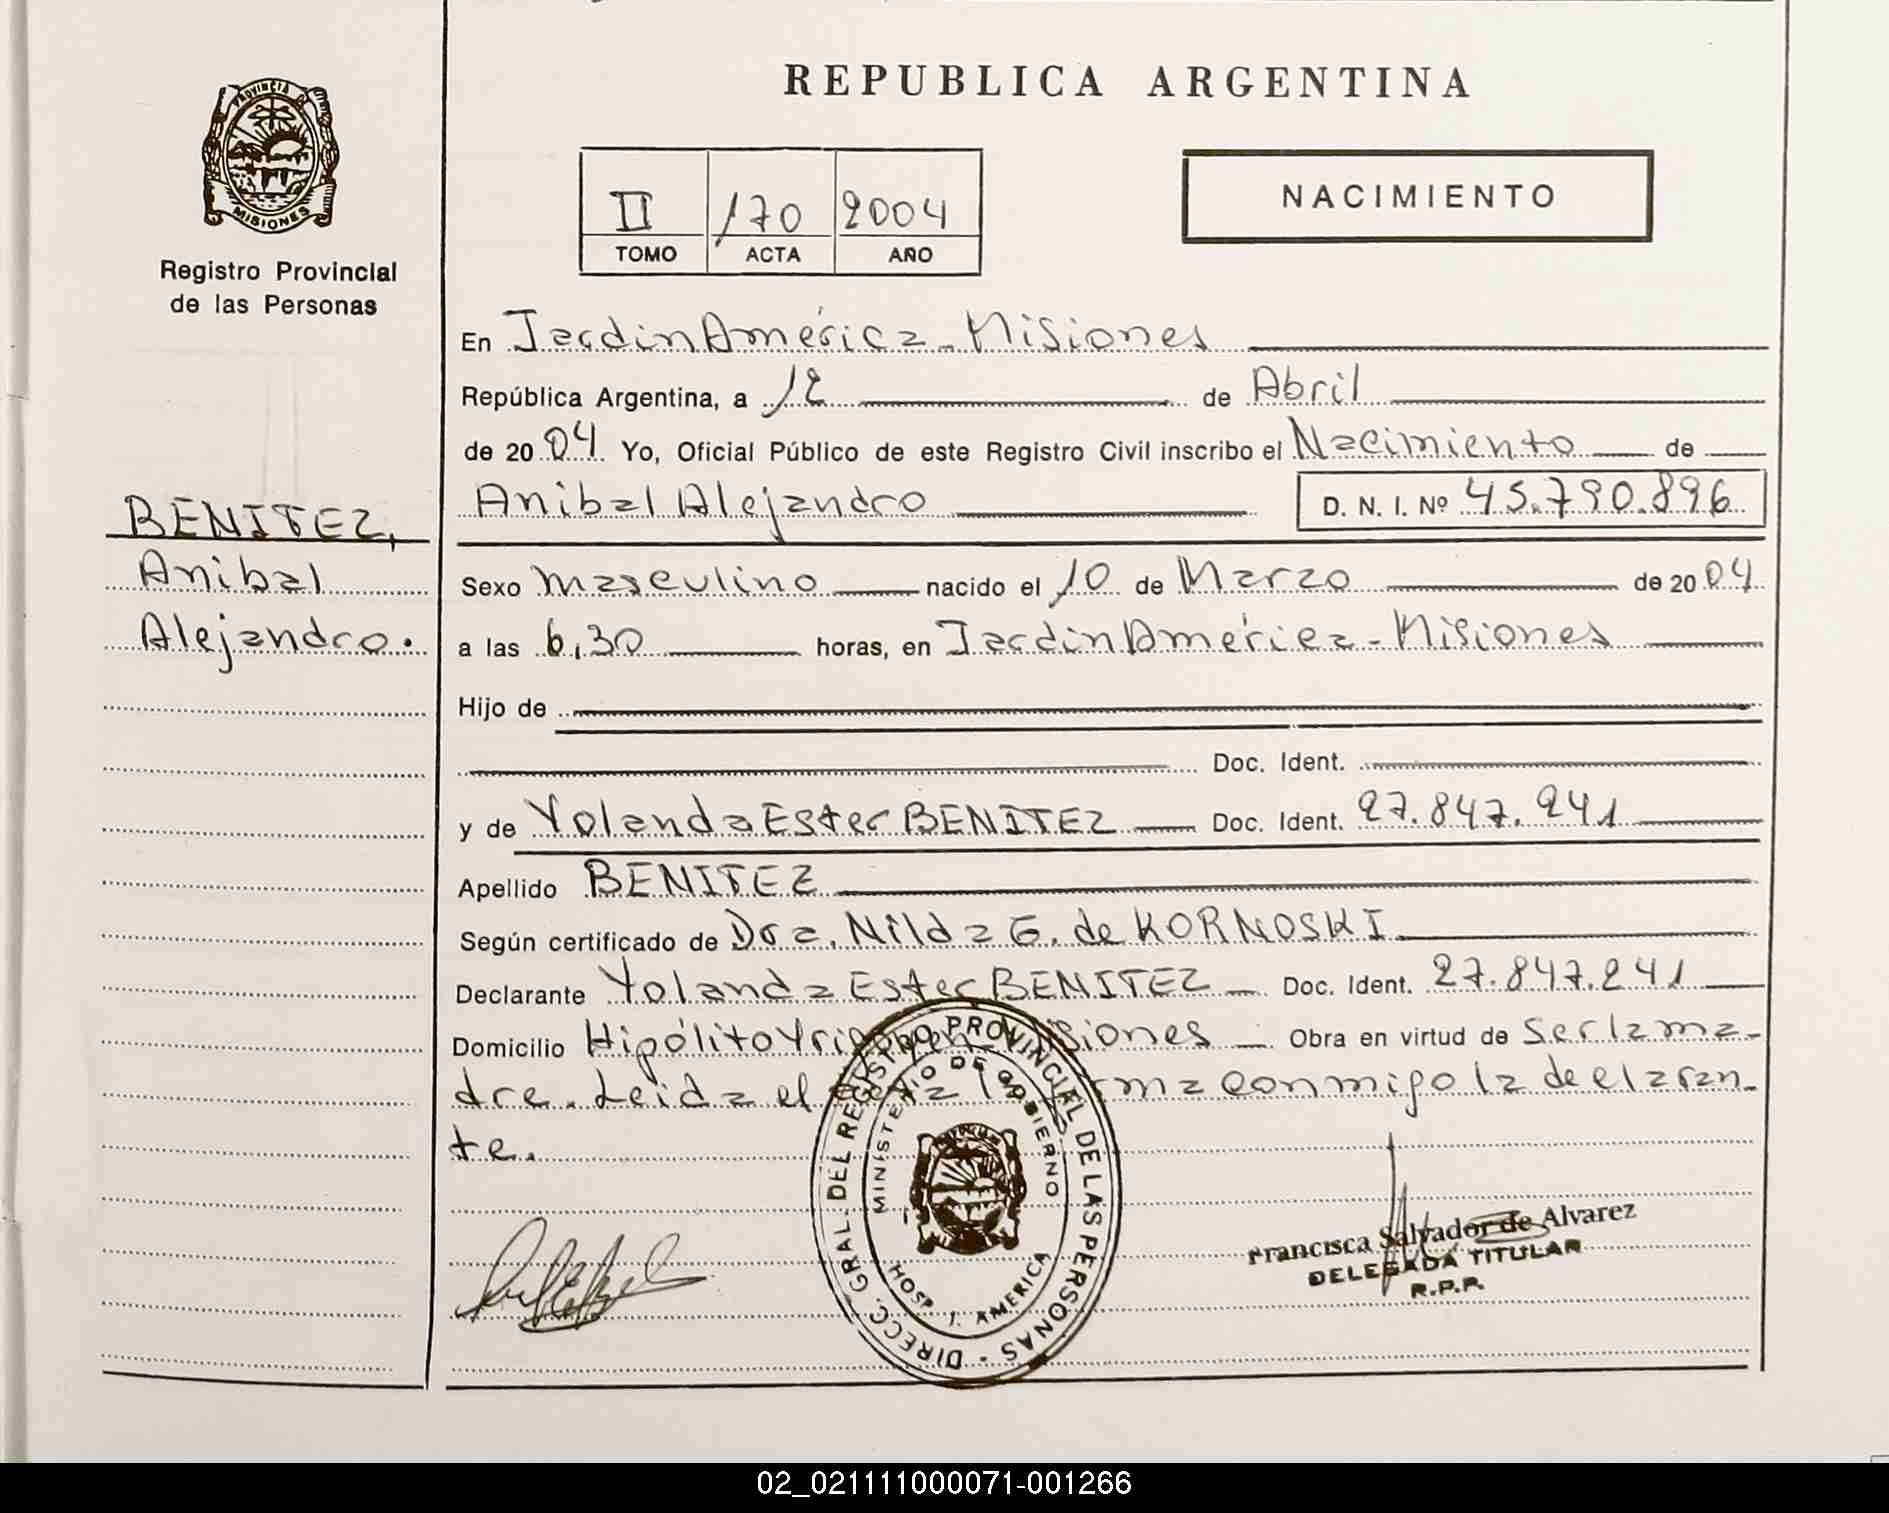 REPUBLICA ARGENTINA
PROVINCIA DE
MISIONES
Registro Provincial
de las Personas
II /170 2004
TOMO ACTA AÑO
NACIMIENTO
En Jardin América - Misiones
República Argentina, a 12 de Abril
de 2004 Yo, Oficial Público de este Registro Civil inscribo el Nacimiento de
Anibal Alejandro D. N. I. Nº 45.790.896
BENITEZ,
Anibal
Alejandro.
Sexo masculino nacido el 10 de Marzo de 2004
a las 6,30 horas, en Jardin América - Misiones
Hijo de
Doc. Ident.
y de Yolanda Ester BENITEZ Doc. Ident. 27.847.241
Apellido BENITEZ
Según certificado de Dra. Nilda G. de KORNOSKI
Declarante Yolanda Ester BENITEZ Doc. Ident. 27.847.241
Domicilio Hipólito Yrigoyen - Misiones Obra en virtud de Ser la ma-
dre. Leida el acta la firma conmigo la declaran-
te.
DIRECC. GRAL. DEL REGISTRO PROVINCIAL DE LAS PERSONAS -
MINISTERIO DE GOBIERNO
HOSP. J. AMERICA
Francisca Salvador de Alvarez
DELEGADA TITULAR
R.P.P.
02_021111000071-001266